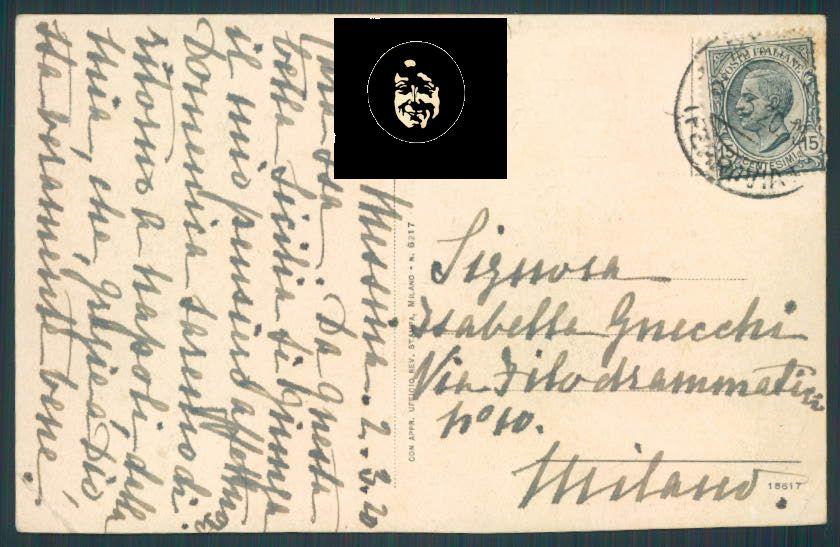 Messina. 2-3-20
Cara zia. Da questa
bella Sicilia ti giunga
il mio pensiero affettuo
so
Domenica saremo di
ritorno a Napoli dalla
mia, che, grazie a Dio,
sta veramente bene.
CON APPR. UFFICIO REV. STAMPA, MILANO - N. 6217
POSTE ITALIANE
15
CENTESIMI 15
Signora
Isabella Gnecchi
Via Filodrammatici
No 10.
Milano
18617